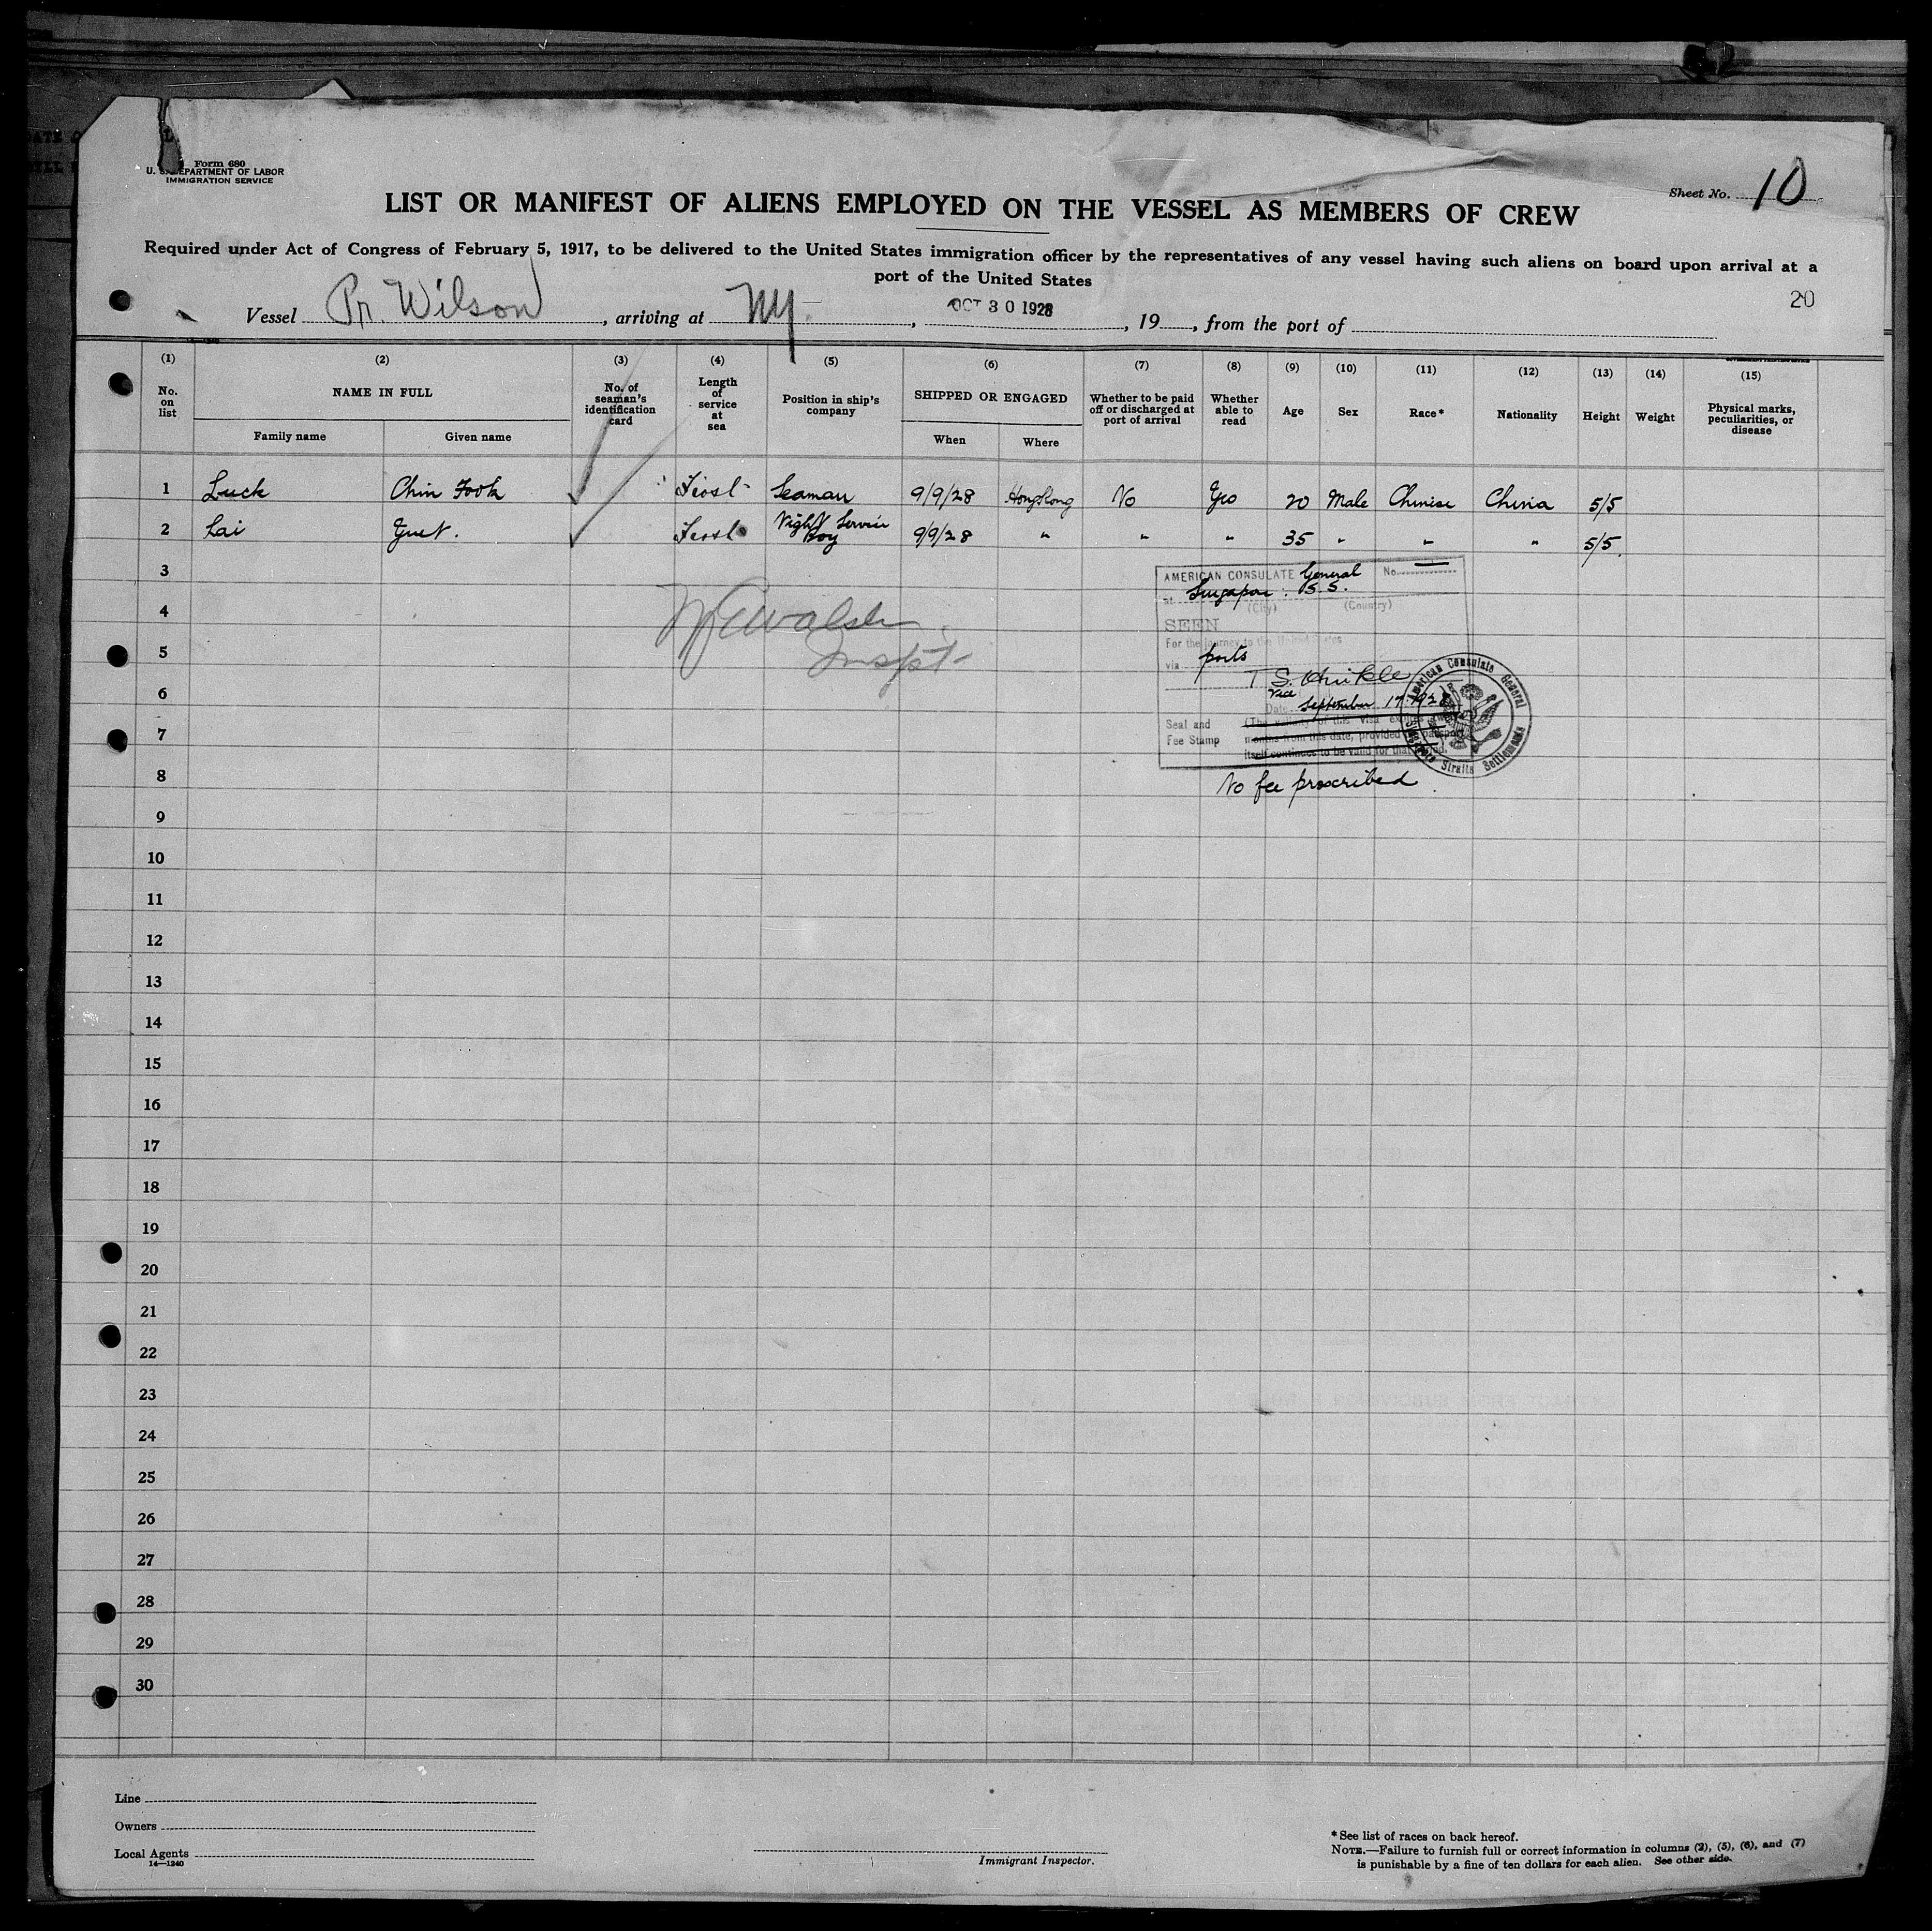 Form 680
U. S. DEPARTMENT OF LABOR
IMMIGRATION SERVICE
Sheet No. 10
LIST OR MANIFEST OF ALIENS EMPLOYED ON THE VESSEL AS MEMBERS OF CREW
Required under Act of Congress of February 5, 1917, to be delivered to the United States immigration officer by the representatives of any vessel having such aliens on board upon arrival at a
port of the United States
20
Vessel Pr. Wilson, arriving at NY, OCT 30 1928, 19, from the port of
(1) (2) (3) (4) (5) (6) (7) (8) (9) (10) (11) (12) (13) (14) (15)
No. on list NAME IN FULL No. of seaman's identification card Length of service at sea Position in ship's company SHIPPED OR ENGAGED Whether to be paid off or discharged at port of arrival Whether able to read Age Sex Race* Nationality Height Weight Physical marks, peculiarities, or disease
Family name Given name When Where
1 Luck Chin Fook First Seaman 9/9/28 HongKong No Yes 20 Male Chinese China 5/5
2 Lai First Night Service Boy 9/9/28 " " " 35 " " " 5/5
3
4
5
6
7
8
9
10
11
12
13
14
15
16
17
18
19
20
21
22
23
24
25
26
27
28
29
30
Walsh
Inspt
AMERICAN CONSULATE General No.
at Singapore S.S.
(City) (Country)
SEEN
For the journey to the United States
via ports
Vice
Date September 17 1928
Seal and (The validity of this visa expires
Fee Stamp months from this date, provided passport
itself continues to be valid for that period.
American Consulate General
Singapore Straits Settlements
No fee prescribed
Line
Owners
Local Agents
14—1240
Immigrant Inspector.
*See list of races on back hereof.
NOTE.—Failure to furnish full or correct information in columns (2), (5), (6), and (7)
is punishable by a fine of ten dollars for each alien. See other side.